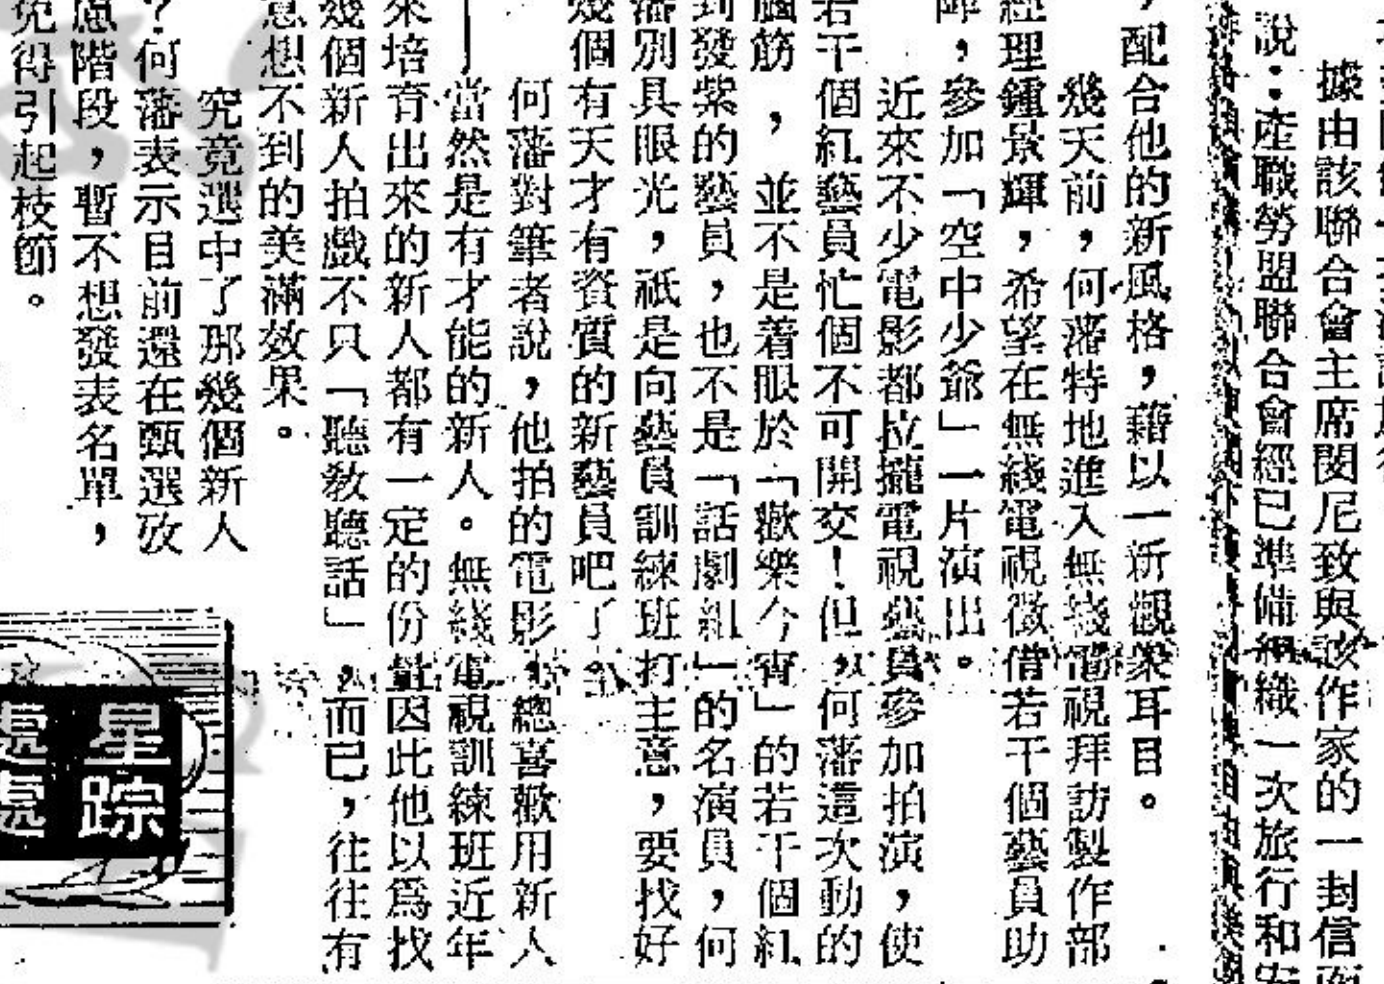 據由該聯合會主席閔尼致與該作家的一封信
說：產職勞盟聯合會經已準備組織一次旅行和
，配合他的新風格，藉以一新觀衆耳目。
幾天前，何藩特地進入無綫電視拜訪製作部
經理鍾景輝，希望在無綫電視徵借若干個藝員助
陣，參加「空中少爺」一片演出。
近來不少電影都拉攏電視藝員參加拍演，使
若干個紅藝員忙個不可開交！但，何藩這次動的
腦筋，並不是着眼於「歡樂今宵」的若干個紅
到發紫的藝員，也不是「話劇組」的名演員，何
藩別具眼光，祇是向藝員訓練班打主意，要找好
幾個有天才有資質的新藝員吧了。
何藩對筆者說，他拍的電影，總喜歡用新人
—當然是有才能的新人。無綫電視訓練班近年
來培育出來的新人都有一定的份量因此他以爲找
幾個新人拍戲不只「聽敎聽話」，而已，往往有
意想不到的美滿效果。
究竟選中了那幾個新人
？何藩表示目前還在甄選攷
慮階段，暫不想發表名單，
免得引起枝節。
星踪
處處